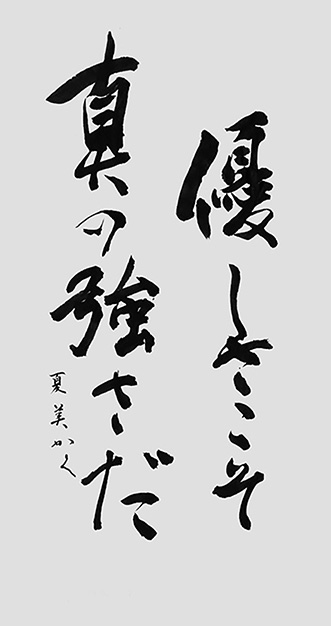 優しさこそ
真の強さだ
夏美かく